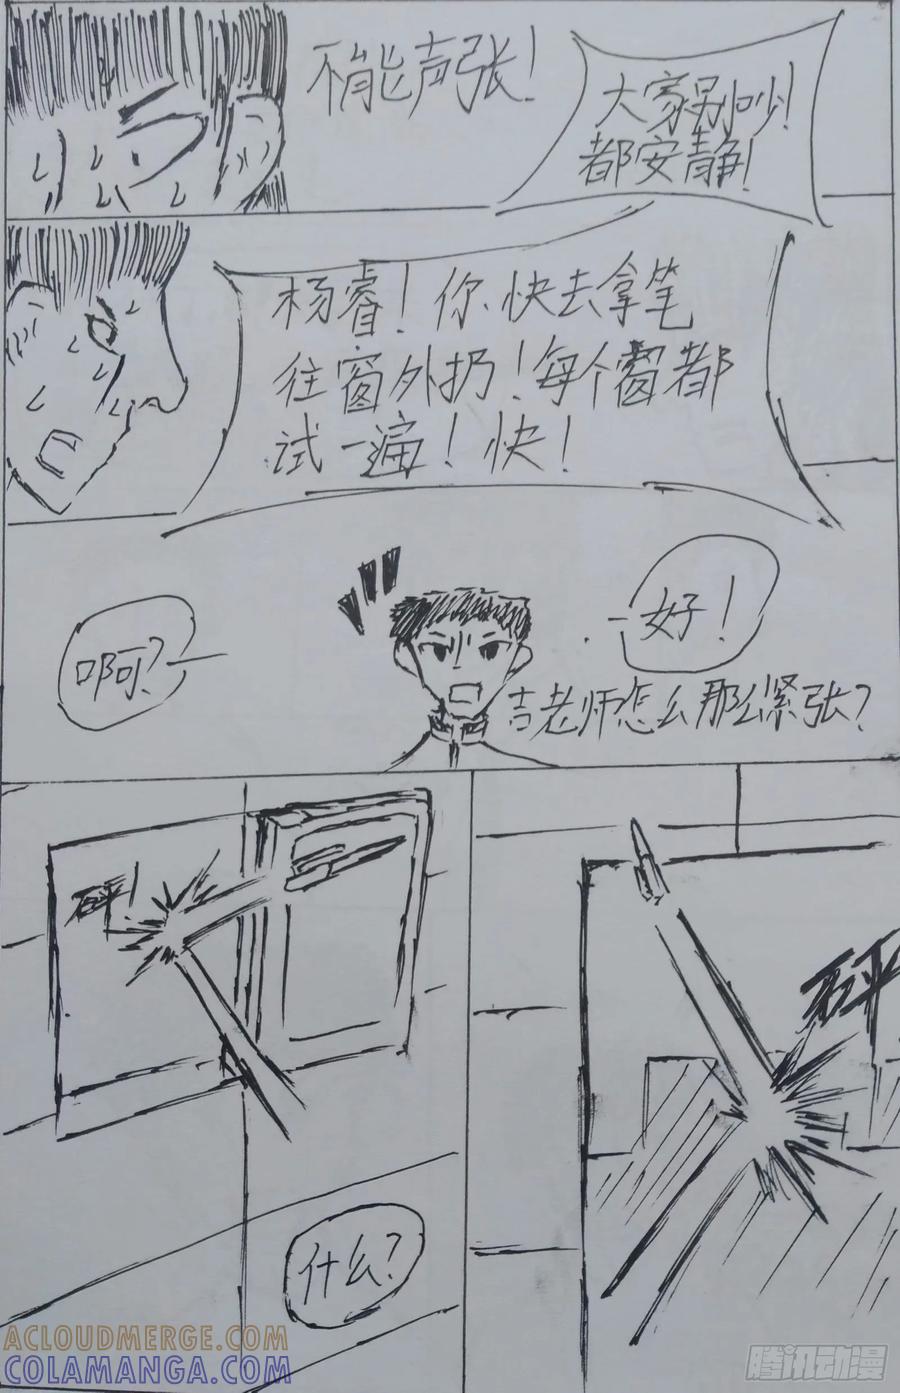 不能声张！
大家别吵！
都安静！
杨睿！你快去拿笔
往窗外扔！每个窗都
试一遍！快！
啊？
好！
吉老师怎么那么紧张？
砰！
砰
什么？
ACLOUDMERGE.COM
COLAMANGA.COM
腾讯动漫